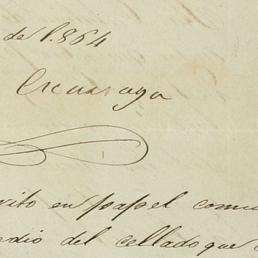 de 1.864
Escurraga
rito en papel comu
dio del cellado que